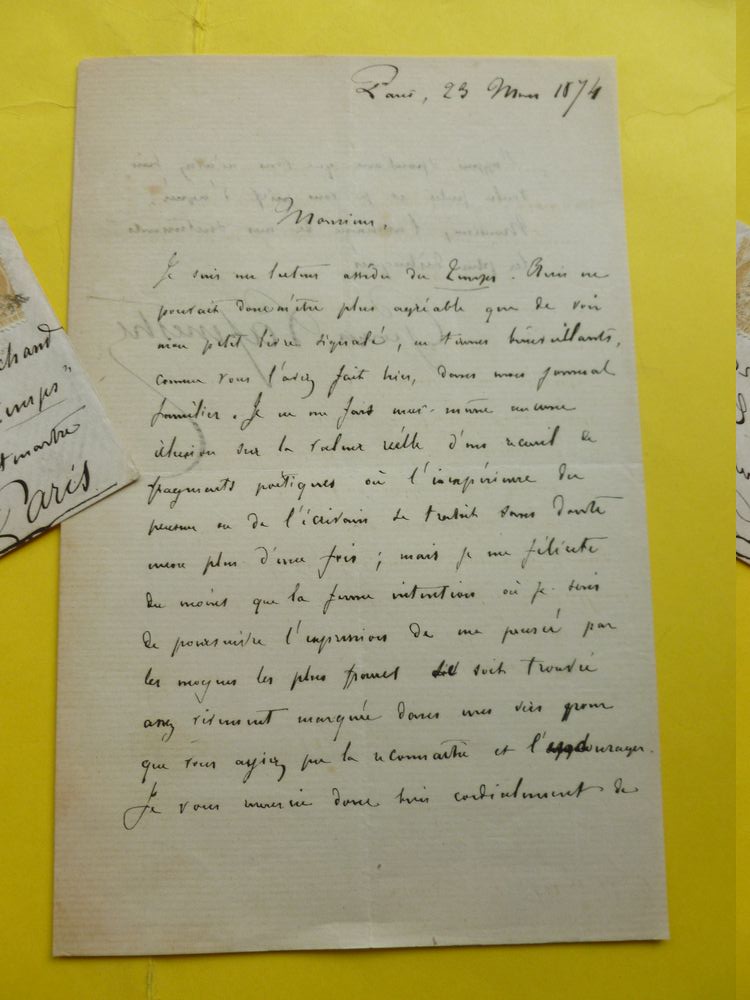 Paris, 23 Mars 1874
Monsieur,
Je suis un lecteur assidu du Temps. Rien ne
pouvait donc m'être plus agréable que de voir
mon petit livre signalé, en termes bienveillants,
comme vous l'avez fait hier, dans mon journal
familier. Je ne me fais moi-même aucune
illusion sur la valeur réelle d'un recueil de
fragments poétiques où l'inexpérience du
penseur ou de l'écrivain se trahit sans doute
encore plus d'une fois ; mais je me félicite
du moins que la ferme intention où je suis
de poursuivre l'expression de ma pensée par
les moyens les plus francs se soit trouvée
assez vivement marquée dans mes vers pour
que vous ayiez pu la reconnaître et l'encourager.
Je vous remercie donc bien cordialement de
chand
Temps"
martre
Paris